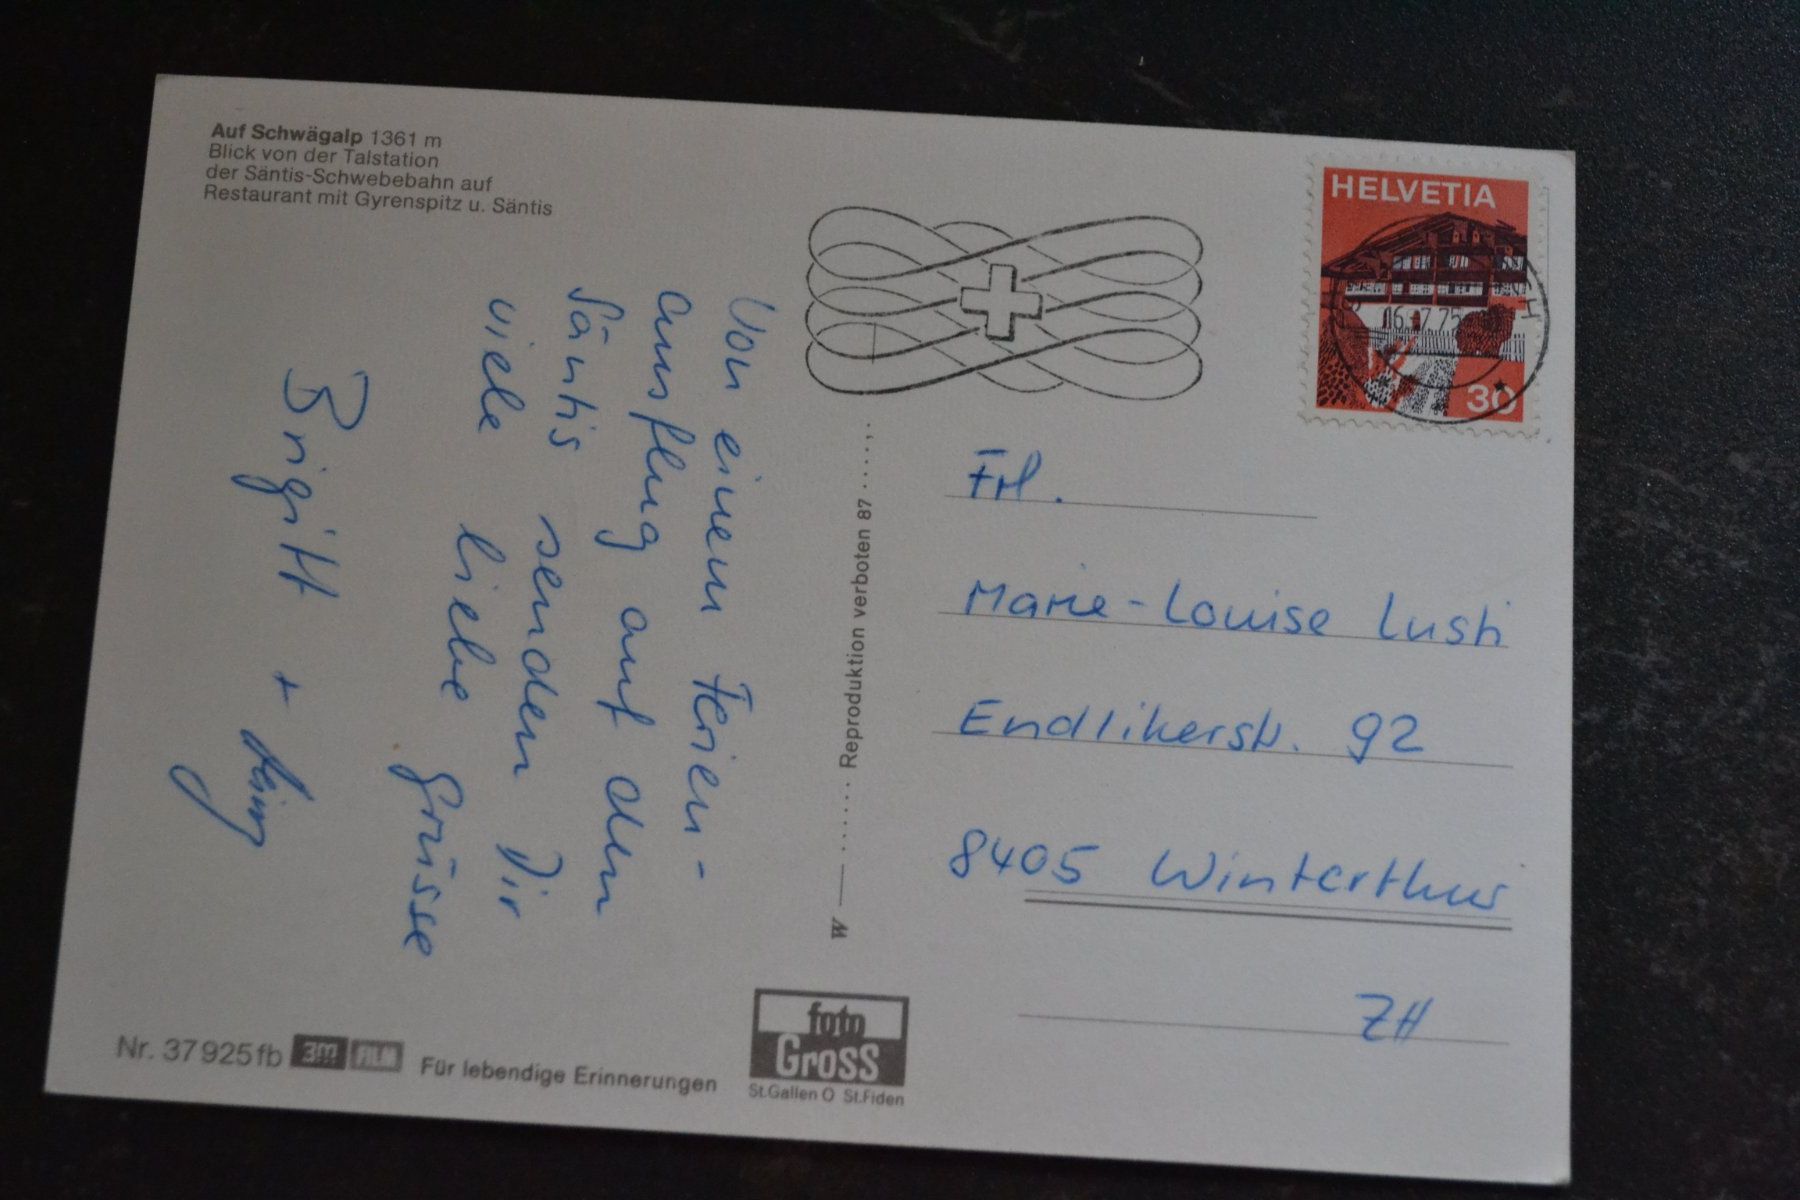 Auf Schwägalp 1361 m
Blick von der Talstation
der Säntis-Schwebebahn auf
Restaurant mit Gyrenspitz u. Säntis
Von einem Ferien-
ausflug auf den
Säntis senden Dir
viele liebe Grüsse
Brigitt +
HELVETIA
30
Frl.
Marie-Louise Lusti
Endlikerstr. 92
8405 Winterthur
ZH
W Reproduktion verboten 87
Nr. 37925fb 3m FILM Für lebendige Erinnerungen
foto
Gross
St.Gallen O St.Fiden